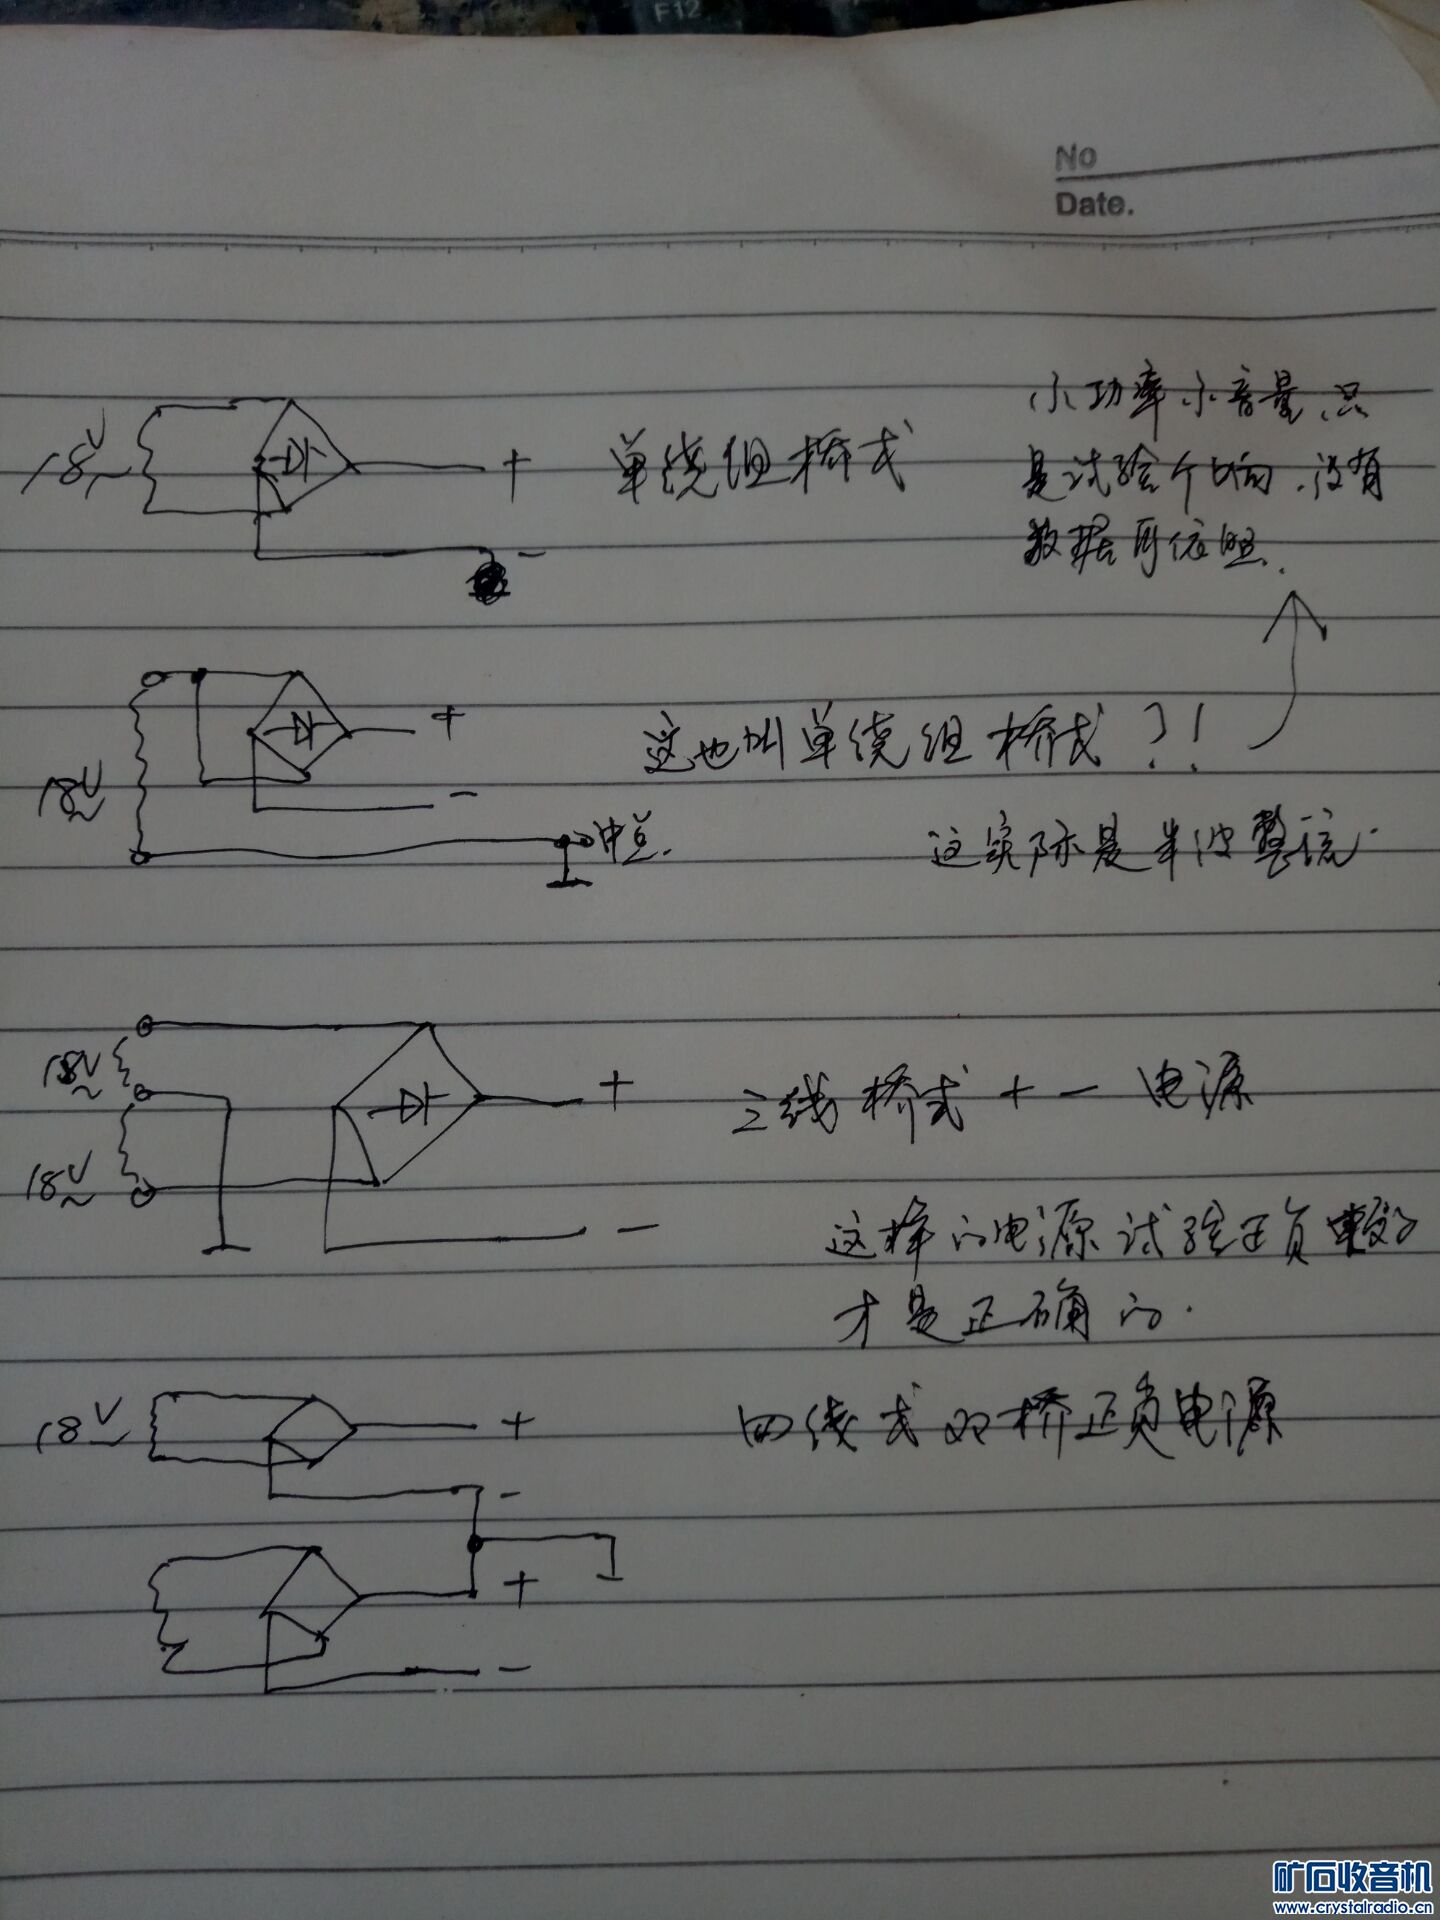 F12
No
Date.
18V~
+
-
单绕组桥式
小功率小音量,只
是试验个响,没有
数据可依照.
18V~
+
-
中点.
这也叫单绕组桥式?!
这实际是半波整流.
18V~
18V~
+
-
三线桥式 + - 电源
这样的电源试验正负
才是正确的.
18V~
+
-
+
-
四线式双桥正负电源
矿石收音机
www.crystalradio.cn